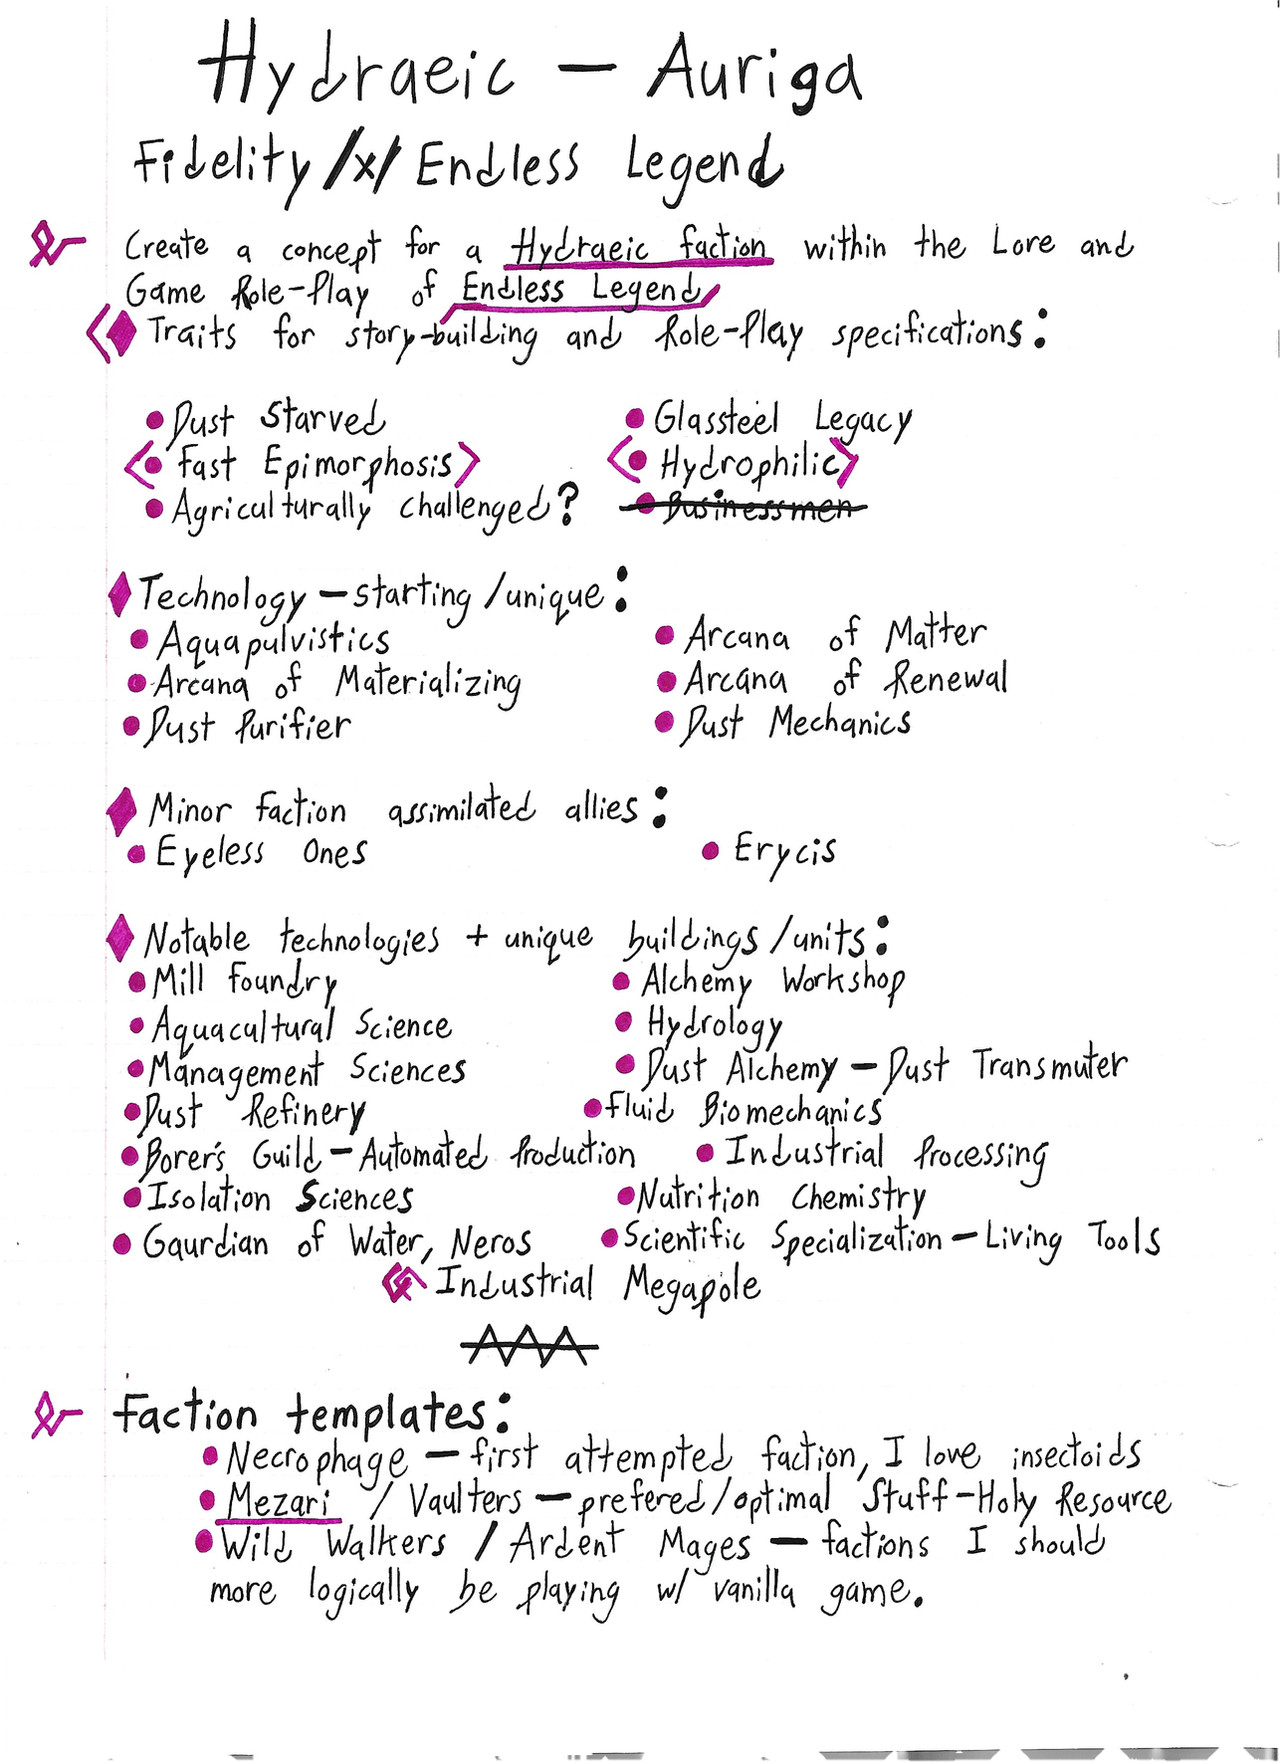 Hydraeic — Auriga
Fidelity /x/ Endless Legend
Create a concept for a Hydraeic faction within the Lore and
Game Role-Play of Endless Legend
Traits for story-building and Role-Play specifications:
Dust Starved
Glassteel Legacy
Fast Epimorphosis
Hydrophilic
Agriculturally challenged?
Businessmen
Technology — starting/unique:
Aquapulvistics
Arcana of Matter
Arcana of Materializing
Arcana of Renewal
Dust Purifier
Dust Mechanics
Minor faction assimilated allies:
Eyeless Ones
Erycis
Notable technologies + unique buildings/units:
Mill Foundry
Alchemy Workshop
Aquacultural Science
Hydrology
Management Sciences
Dust Alchemy — Dust Transmuter
Dust Refinery
Fluid Biomechanics
Borer's Guild — Automated Production
Industrial Processing
Isolation Sciences
Nutrition Chemistry
Gaurdian of Water, Neros
Scientific Specialization — Living Tools
Industrial Megapole
Faction templates:
Necrophage — first attempted faction, I love insectoids
Mezari / Vaulters — prefered/optimal Stuff-Holy Resource
Wild Walkers / Ardent Mages — factions I should
more logically be playing w/ vanilla game.